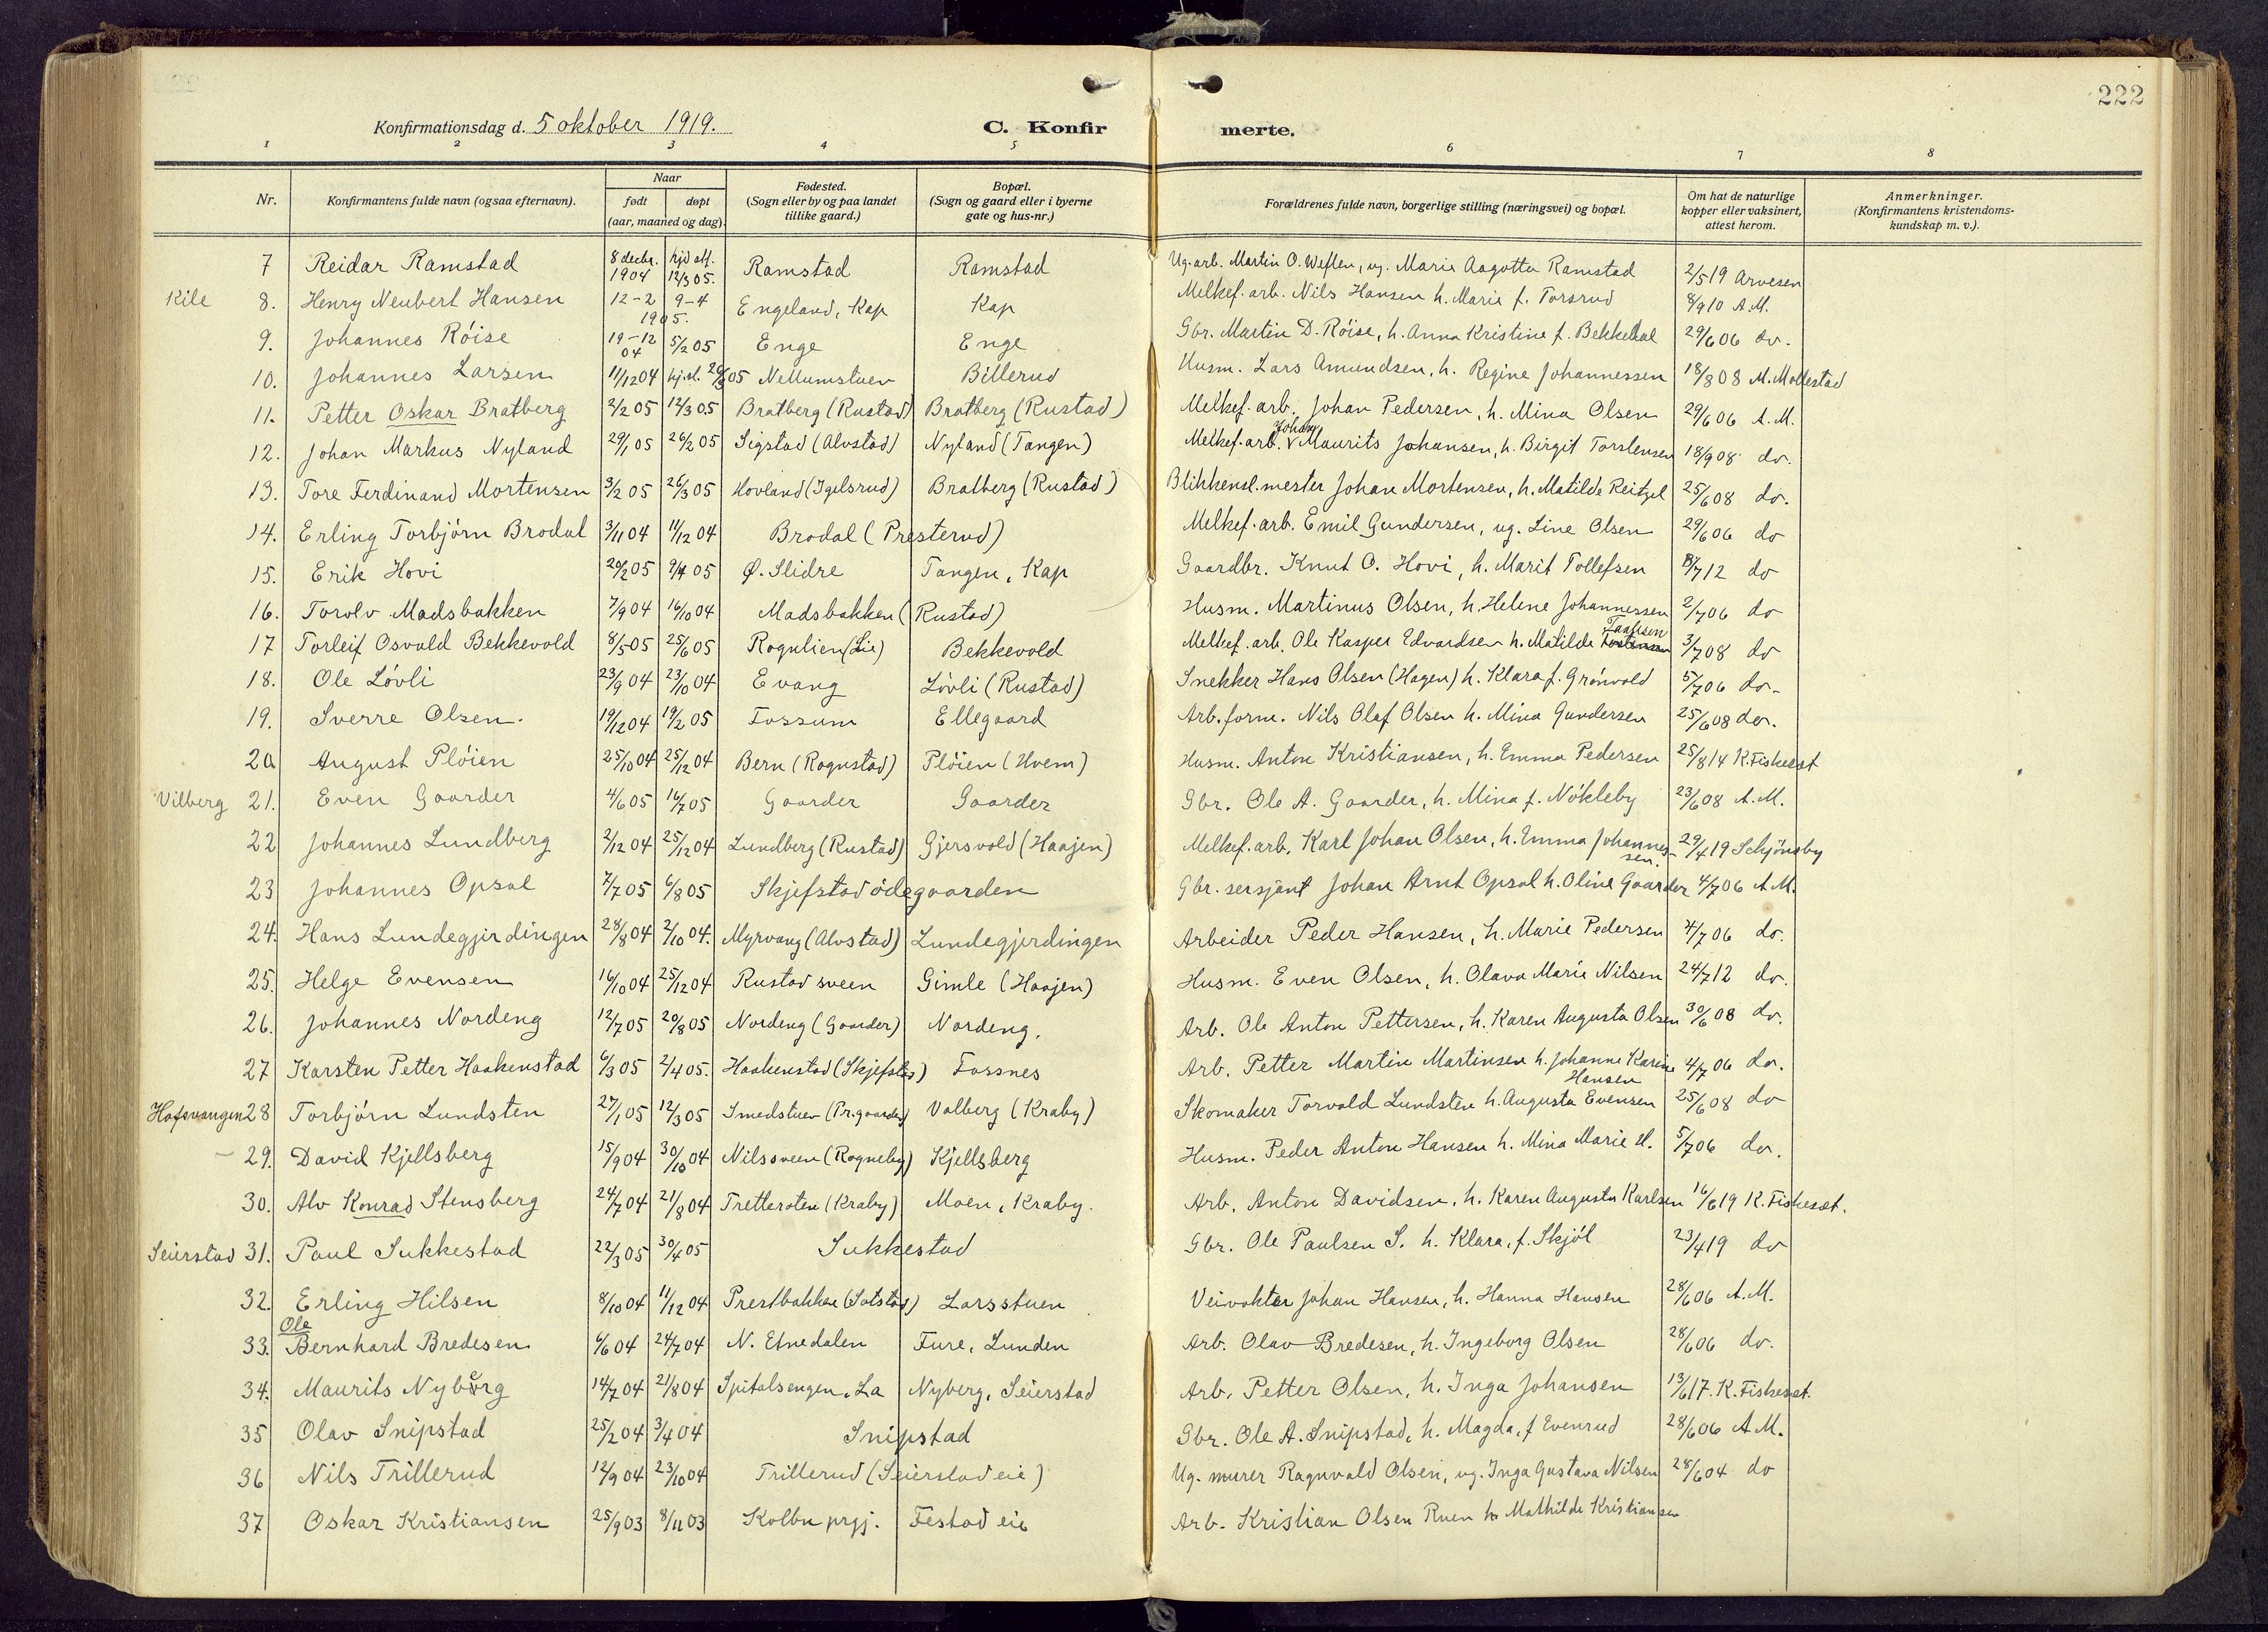 222
Konfirmationsdag d. 5 oktober 1919. C. Konfir merte.
1 2 3 4 5 6 7 8
Nr. Konfirmantens fulde navn (ogsaa efternavn). Naar født døpt (aar, maaned og dag). Fødested. (Sogn eller by og paa landet tillike gaard.) Bopæl. (Sogn og gaard eller i byerne gate og hus-nr.) Forældrenes fulde navn, borgerlige stilling (næringsvei) og bopæl. Om hat de naturlige kopper eller vaksinert, attest herom. Anmerkninger. (Konfirmantens kristendoms-kundskap m. v.).
7 Reidar Ramstad 8 decbr. 1904 hjd st. 12/3 05. Ramstad Ramstad Ug. arb. Martin O. Weflen, ug. Marie Aagotta Ramstad 2/5 19 Arvesen
Kile 8. Henry Neubert Hansen 12-2 9-4 1905. Engeland, Kap Kap Melkef. arb. Nils Hansen h. Marie f. Torsrud 8/9 10 A.M.
9. Johannes Röise 19-12 04 5/2 05 Enge Enge Gbr. Martin D. Röise, h. Anna Kristine f. Bekkedal 29/6 06 do.
10. Johannes Larsen 11/12 04 hj.d. 26/ 05 Nettumstuen Billerud Husm. Lars Amundsen, h. Regine Johannessen 18/8 08 M. Mollestad
11. Petter Oskar Bratberg 2/2 05 12/3 05 Bratberg (Rustad) Bratberg (Rustad) Melkef. arb. Johan Pedersen, h. Mina Olsen 29/6 06 A.M.
12. Johan Markus Nyland 29/1 05 26/2 05 Sigstad (Alvstad) Nyland (Tangen) Melkef. arb. Johan Maurits Johansen, h. Birgit Torstensen 18/9 08 do.
13. Tore Ferdinand Mortensen 3/2 05 26/3 05 Hovland (Igelsrud) Bratberg (Rustad) Blikkensl. mester Johan Mortensen, h. Matilde Reitzel 25/6 08 do.
14. Erling Torbjörn Brodal 3/11 04 11/12 04 Brodal (Presterud) Melkef. arb. Emil Gundersen, ug. Line Olsen 29/6 06 do
15. Erik Hovi 20/2 05 9/4 05 Ø. Slidre Tangen, Kap Gaardbr. Knut O. Hovi, h. Marit Tollefsen 8/7 12 do
16. Torolv Madsbakken 7/9 04 16/10 04 Madsbakken (Rustad) Husm. Martinus Olsen, h. Helene Johannessen 2/7 06 do
17 Torleif Osvald Bekkevold 8/5 05 25/6 05 Rognlien (Lie) Bekkevold Melkef. arb. Ole Kasper Edvardsen h. Matilde 3/7 08 do
18. Ole Lövli 23/9 04 23/10 04 Evang Lövli (Rustad) Snekker Hans Olsen (Hagen) h. Klara f. Grönvold 5/7 06 do.
19. Sverre Olsen. 19/12 04 19/2 05 Fossum Ellegaard Arb. form. Nils Olaf Olsen h. Mina Gundersen 25/6 08 do.
20 August Plöien 25/10 04 25/12 04 Bern (Rognstad) Plöien (Hvem) Husm. Anton Kristiansen, h. Emma Pedersen 25/8 14 K. Fiskeset
Vilberg 21. Even Gaarder 4/6 05 16/7 05 Gaarder Gaarder Gbr. Ole A. Gaarder, h. Mina f. Nökleby 23/6 08 A.M.
22 Johannes Lundberg 2/12 04 25/12 04 Lundberg (Rustad) Gjersvold (Haajen) Melkef. arb. Karl Johan Olsen, h. Emma Johannessen. 29/4 19 Schjönsby
23 Johannes Opsal 7/7 05 6/8 05 Skjefstadödegaarden Gbr. sersjant Johan Arnt Opsal h. Oline Gaarder 4/7 06 A.M.
24. Hans Lundegjerdingen 28/8 04 2/10 04. Myrvang (Alvstad) Lundegjerdingen Arbeider Peder Hansen, h. Marie Pedersen 4/7 06 do.
25. Helge Evensen 16/10 04 25/12 04 Rustadsveen Gimle (Haajen) Husm. Even Olsen, h. Olava Marie Nilsen 24/7 12 do.
26. Johannes Nordeng 12/7 05 20/8 05 Nordeng (Gaarder) Nordeng. Arb. Ole Anton Pettersen, h. Karen Augusta Olsen 30/6 08 do.
27 Karsten Petter Haakenstad 6/3 05 2/4 05. Haakenstad (Skjefstad) Fossnes Arb. Petter Martin Martinsen h. Johanne Karine Hansen 4/7 06 do.
Hofsvangen 28 Torbjörn Lundsten 27/1 05 12/3 05 Smedstuen (Pr.gaarden) Valberg (Kraby) Skomaker Torvald Lundsten h. Augusta Evensen 25/6 08 do
– 29. David Kjellsberg 15/9 04 30/10 04 Nilssveen (Rogneby) Kjellsberg Husm. Peder Anton Hansen h. Mina Marie H. 5/7 06 do.
30. Alv Konrad Stensberg 24/7 04 21/8 04 Tretteroten (Kraby) Moen, Kraby. Arb. Anton Davidsen, h. Karen Augusta Karlsen 16/6 19 K. Fiskeset.
Seierstad 31. Paul Sukkestad 22/3 05 30/4 05 Sukkestad Gbr. Ole Paulsen S. h. Klara, f. Skjöl 23/4 19 do
32. Erling Hilsen 8/10 04 11/12 04 Prestbakken (Sotstad) Larsstuen Veivokter Johan Hansen, h. Hanna Hansen 28/6 06 A.M.
33. Ole Bernhard Bredesen 6/6 04 24/7 04 N. Etnedalen Fure, Lunden Arb. Olav Bredesen, h. Ingeborg Olsen 28/6 06 do.
34. Maurits Nyberg 14/7 04 21/8 04 Spitalsengen, La Nyberg, Seierstad Arb. Petter Olsen, h. Inga Johansen 13/6 17. K. Fiskeset.
35 Olav Snipstad 25/2 04 3/4 04 Snipstad Gbr. Ole A. Snipstad, h. Magda, f Evenrud 28/6 06 A.M.
36 Nils Trillerud 12/9 04 23/10 04 Trillerud (Seierstad eie) Ug. murer Ragnvald Olsen, ug. Inga Gustava Nilsen 28/6 04 do
37 Oskar Kristiansen 25/9 03 8/11 03 Kolbu prgj. Festad eie Arb. Kristian Olsen Ruen h. Mathilde Kristiansen